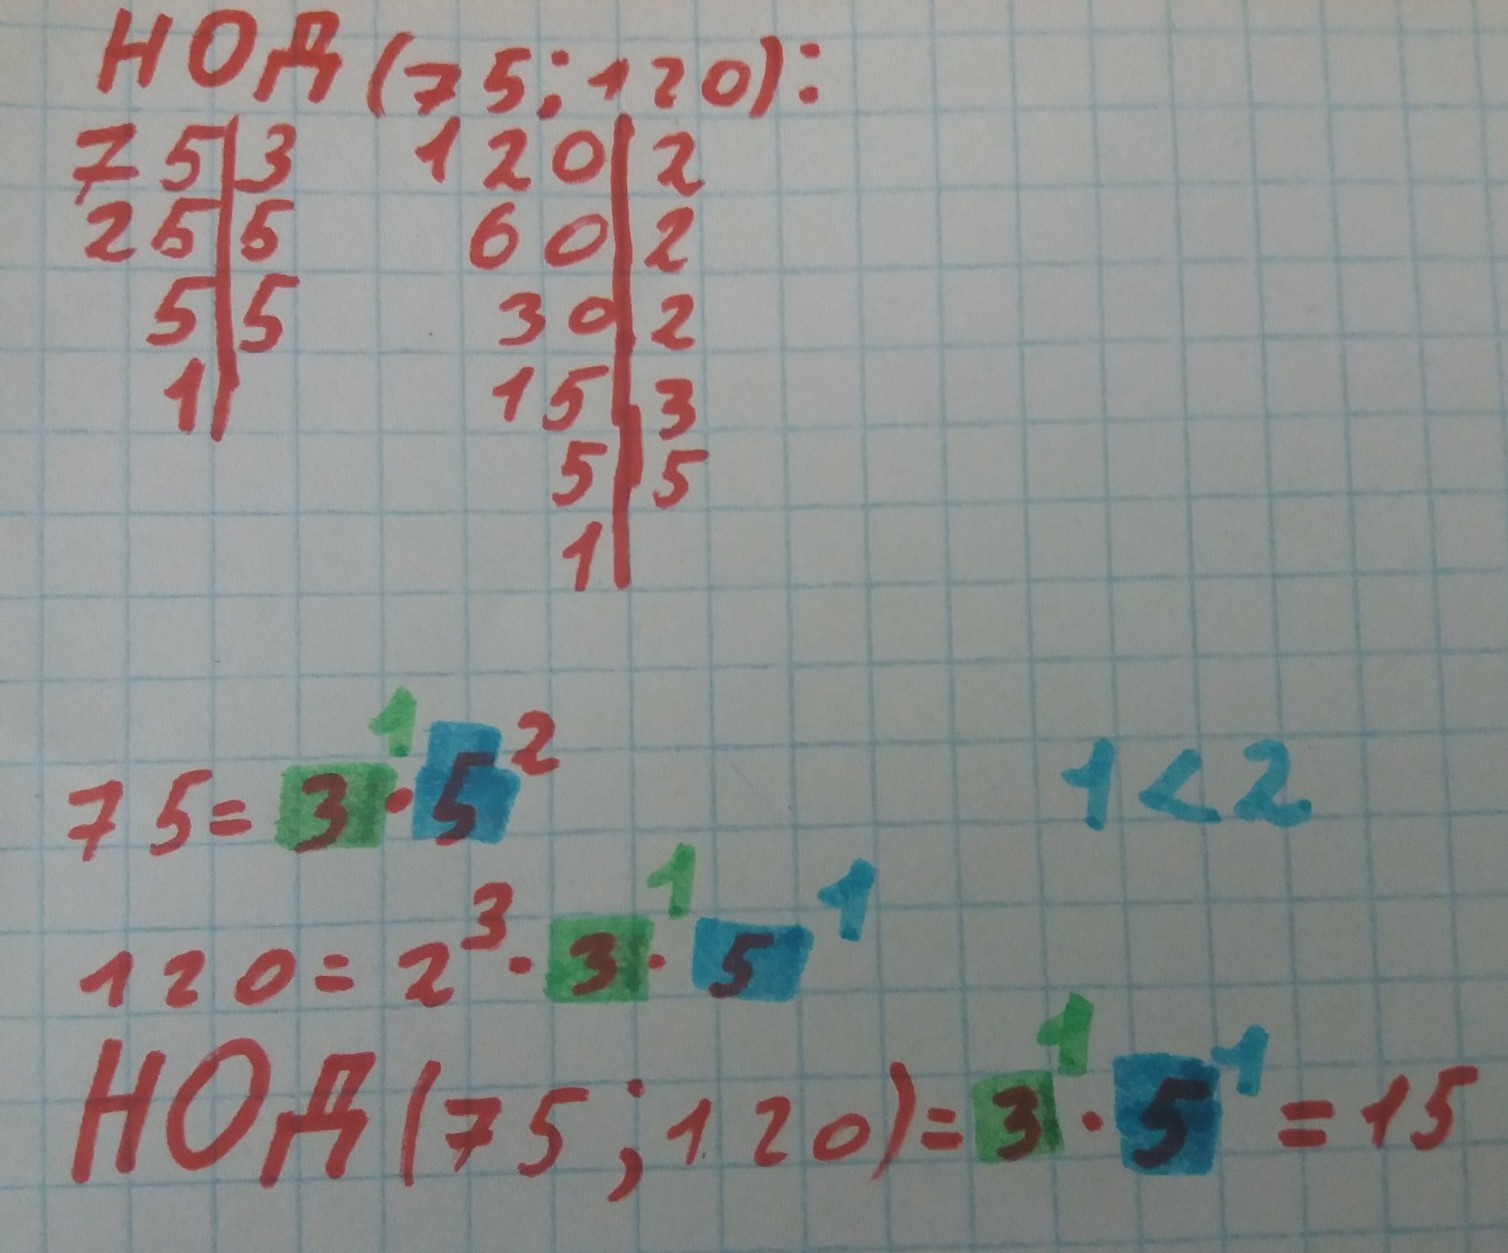 НОД (75;120):
75|3 120|2
25|5 60|2
5|5 30|2
1| 15|3
5|5
1|
75=3¹·5² 1<2
120=2³·3¹·5¹
НОД(75;120)=3¹·5¹=15